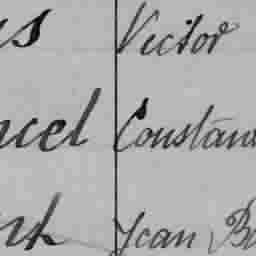 us Victor
ncel Constan
Jean Ba